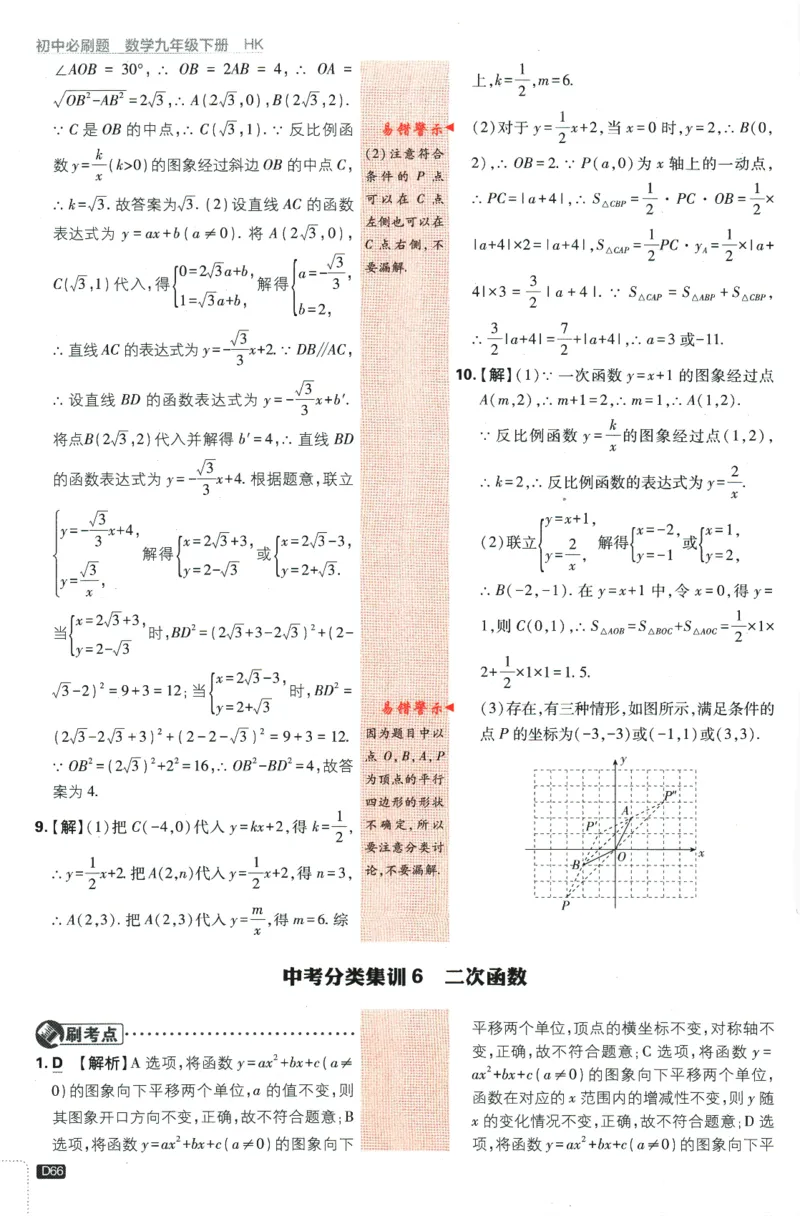 初中必刷题 数学九年级下册 HK
∠AOB = 30°, ∴ OB = 2AB = 4, ∴ OA =
√(OB²-AB²)=2√3,∴ A(2√3,0),B(2√3,2).
∵ C 是 OB 的中点,∴ C(√3,1). ∵ 反比例函
数 y=k/x(k>0)的图象经过斜边 OB 的中点 C,
∴ k=√3. 故答案为√3. (2)设直线 AC 的函数
表达式为 y=ax+b(a≠0). 将 A(2√3,0),
C(√3,1)代入,得{0=2√3a+b, 1=√3a+b, 解得{a=-√3/3, b=2,
∴ 直线 AC 的表达式为 y=-√3/3x+2. ∵ DB∥AC,
∴ 设直线 BD 的函数表达式为 y=-√3/3x+b′.
将点B(2√3,2)代入并解得 b′=4,∴ 直线 BD
的函数表达式为 y=-√3/3x+4. 根据题意,联立
{y=-√3/3x+4, y=√3/x, 解得{x=2√3+3, y=2-√3 或{x=2√3-3, y=2+√3.
当{x=2√3+3, y=2-√3 时,BD²=(2√3+3-2√3)²+(2-
√3-2)²=9+3=12;当{x=2√3-3, y=2+√3 时,BD²=
(2√3-2√3+3)²+(2-2-√3)²=9+3=12.
∵ OB²=(2√3)²+2²=16,∴ OB²-BD²=4,故答
案为 4.
9.【解】(1)把 C(-4,0)代人 y=kx+2,得 k=1/2,
∴ y=1/2x+2. 把 A(2,n)代人 y=1/2x+2,得 n=3,
∴ A(2,3). 把 A(2,3)代人 y=m/x,得 m=6. 综
易错警示
(2)注意符合
条件的 P 点
可以在 C 点
左侧也可以在
C 点右侧,不
要漏解.
易错警示
因为题目中以
点 O,B,A,P
为顶点的平行
四边形的形状
不确定,所以
要注意分类讨
论,不要漏解.
上,k=1/2,m=6.
(2)对于 y=1/2x+2,当 x=0 时,y=2,∴ B(0,
2),∴ OB=2. ∵ P(a,0)为 x 轴上的一动点,
∴ PC=|a+4|,∴ S△CBP=1/2·PC·OB=1/2×
|a+4|×2=|a+4|,S△CAP=1/2PC·yA=1/2×|a+
4|×3=3/2|a+4|. ∵ S△CAP=S△ABP+S△CBP,
∴ 3/2|a+4|=7/2+|a+4|,∴ a=3 或-11.
10.【解】(1)∵ 一次函数 y=x+1 的图象经过点
A(m,2),∴ m+1=2,∴ m=1,∴ A(1,2).
∵ 反比例函数 y=k/x的图象经过点(1,2),
∴ k=2,∴ 反比例函数的表达式为 y=2/x.
(2)联立{y=x+1, y=2/x, 解得{x=-2, y=-1 或{x=1, y=2,
∴ B(-2,-1). 在 y=x+1 中,令 x=0,得 y=
1,则 C(0,1),∴ S△AOB=S△BOC+S△AOC=1/2×1×
2+1/2×1×1=1.5.
(3)存在,有三种情形,如图所示,满足条件的
点 P 的坐标为(-3,-3)或(-1,1)或(3,3).
y
P″
A
P′
O
x
B
P
中考分类集训 6 二次函数
刷考点
1. D 【解析】A 选项,将函数 y=ax²+bx+c(a≠
0)的图象向下平移两个单位,a 的值不变,则
其图象开口方向不变,正确,故不符合题意;B
选项,将函数 y=ax²+bx+c(a≠0)的图象向下
平移两个单位,顶点的横坐标不变,对称轴不
变,正确,故不符合题意;C 选项,将函数 y=
ax²+bx+c(a≠0)的图象向下平移两个单位,
函数在对应的 x 范围内的增减性不变,则 y 随
x 的变化情况不变,正确,故不符合题意;D 选
项,将函数 y=ax²+bx+c(a≠0)的图象向下平
D66